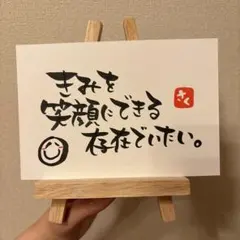 きみを
笑顔にできる
存在でいたい。
さく